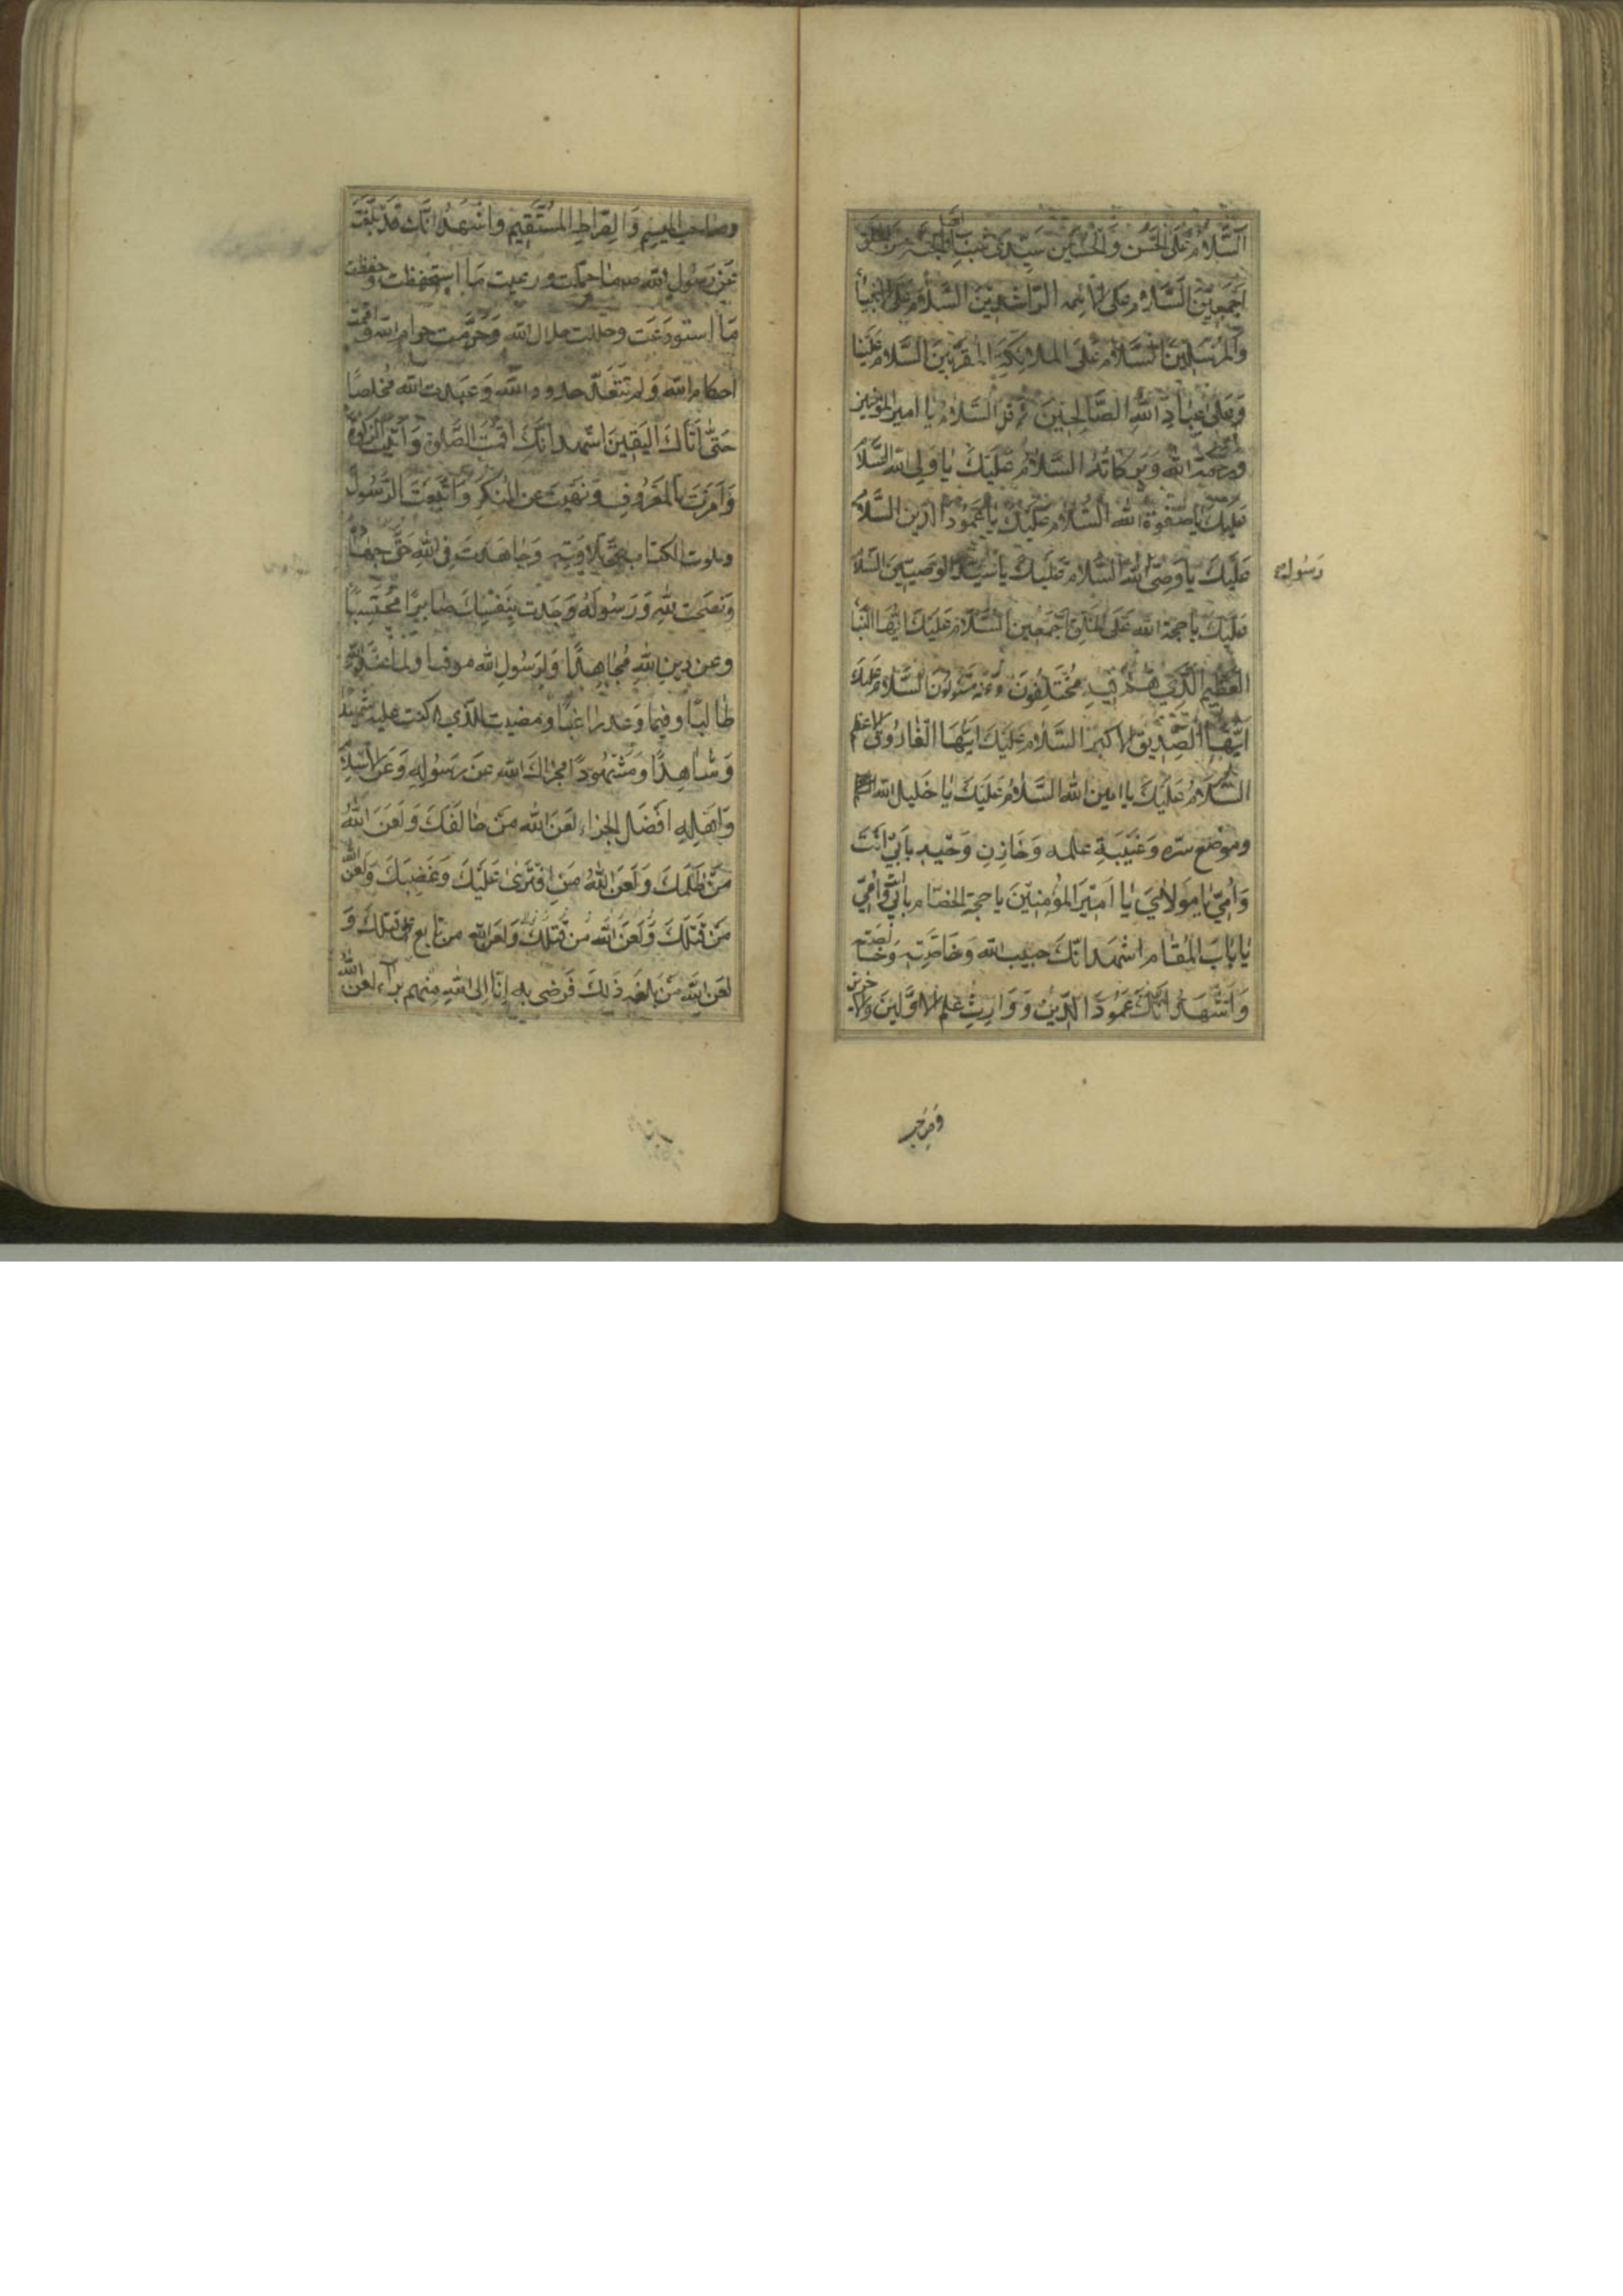 السَّلامُ عَلَى الحَسَنِ وَالحُسَيْنِ سَيِّدَي شباب اهل الجنة من الخلق
اَجْمَعِينَ السَّلامُ عَلَى الائمه الرَّاشِدِينَ السَّلامُ عَلَى الانبياء
وَالمُرْسَلِينَ السَّلامُ عَلَى المَلائِكَةِ المُقَرَّبِينَ السَّلام عَلَيْنَا
وَعَلَى عِبَادِ اللهِ الصَّالِحِينَ السَّلامُ يا امير المؤمنين
وَرَحْمَةُ الله وَبَرَكَاتُهُ السَّلامُ عَلَيْكَ يا وَلِي الله السَّلامُ
عَلَيْكَ يا صَفْوَةَ الله السَّلامُ عَلَيْكَ يا عَمُودَ الدين السَّلامُ
عَلَيْكَ يا وَصِيَّ السَّلامُ عَلَيْكَ يا سَيِّدَ الوَصِيّينَ السَّلامُ
رَسُول
عَلَيْكَ يا حجة الله عَلَى الخَلْقِ اَجْمَعِينَ السَّلامُ عَلَيْكَ ايُّهَا النَّبَأ
العَظِيمُ الَّذِي هُمْ فِيهِ مُخْتَلِفُونَ وَعَنْهُ مَسْئُولُونَ السَّلامُ عَلَيْكَ
اَيُّهَا الصِّدِّيقُ الاكبر السَّلامُ عَلَيْكَ اَيُّهَا الفَارُوقُ الاعظم
السَّلامُ عَلَيْكَ يا امين الله السَّلامُ عَلَيْكَ يا خَلِيلَ الله
وموضع سره وَعَيْبَةِ علمه وَخَازِنِ وَحْيِهِ بِاَبِي اَنْتَ
وَاُمِّي يا مَوْلايَ يا اَمِيرَ المُؤْمِنِينَ يا حجة الخصام بِاَبِي وَاُمِّي
يا بابَ المَقَام اشهد انَّكَ حبيب الله وَخَاصَّتِهِ وَخَالصته
وَاَشْهَدُ اَنَّكَ عَمُودُ الدِّينِ وَوَارِثُ عِلْمِ الاوَّلِينَ وَالاخرين
وَصَاحِب
وصاحب الميسم وَالصِّرَاطِ المُسْتَقِيمِ وَاَشْهَدُ انَّكَ قَدْ بَلَّغْتَ
عَنْ رَسُولِ الله ص ما حملت ورعيت مَا استحفظت وحفظت
مَا استودعت وحللت حلال الله وَحَرَّمْت حرام الله واقمت
احكام الله وَلَم تَتَعَدَّ حدود الله وَعبدت الله مُخْلِصًا
حَتَّى اَتَاكَ اليَقِينُ اشهد اَنَّكَ اَقَمْتَ الصَّلوة وَآتَيْتَ الزكوة
وَاَمَرْتَ بالمَعْرُوفِ وَنَهَيْتَ عن المُنْكَرِ وَاتَّبَعْتَ الرَّسُولَ
وتلوت الكتاب حق تلاوَتِهِ وَجَاهَدْتَ فِي اللهِ حَقَّ جِهَادِهِ
وَنَصَحْت للهِ وَرَسُولِهُ وَجُدْت بِنَفْسِكَ صَابِرًا مُحْتَسِبًا
وعن دينِ اللهِ مُجَاهِدًا وَلِرَسُولِ الله موقيا ولما عند الله
طَالِبًا وفيما وَعد راغبًا ومضيت للذي كنت عليه شهيدًا
وَشَاهِدًا وَمَشْهُودًا فجزاك الله عن رَسُولِهِ وَعَن الاسلام
وَاَهْلِهِ اَفْضَل الجزاء لعَنَ الله مَن خَالَفَكَ وَلَعَنَ اللهُ
مَن ظَلَمَكَ وَلَعَنَ اللهُ مَنِ افْتَرى عَلَيْكَ وَغَصَبَكَ وَلَعن الله
مَنْ قَتَلَكَ وَلَعَنَ الله من قَتَلَكَ وَلَعَنَ الله من تابع على قتلك وَ
لَعن الله مَن بَلَغَه ذلِكَ فَرَضِي بِهِ اِنَّا اِلَى اللهِ مِنْهُم براء لعن الله